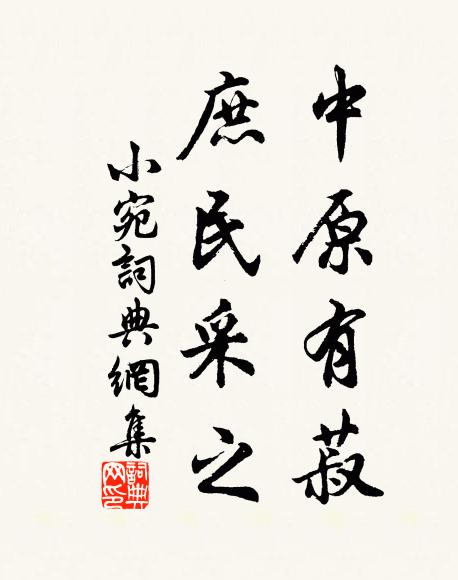 中原有菽
庶民采之
小宛詞典網集
詞典网印